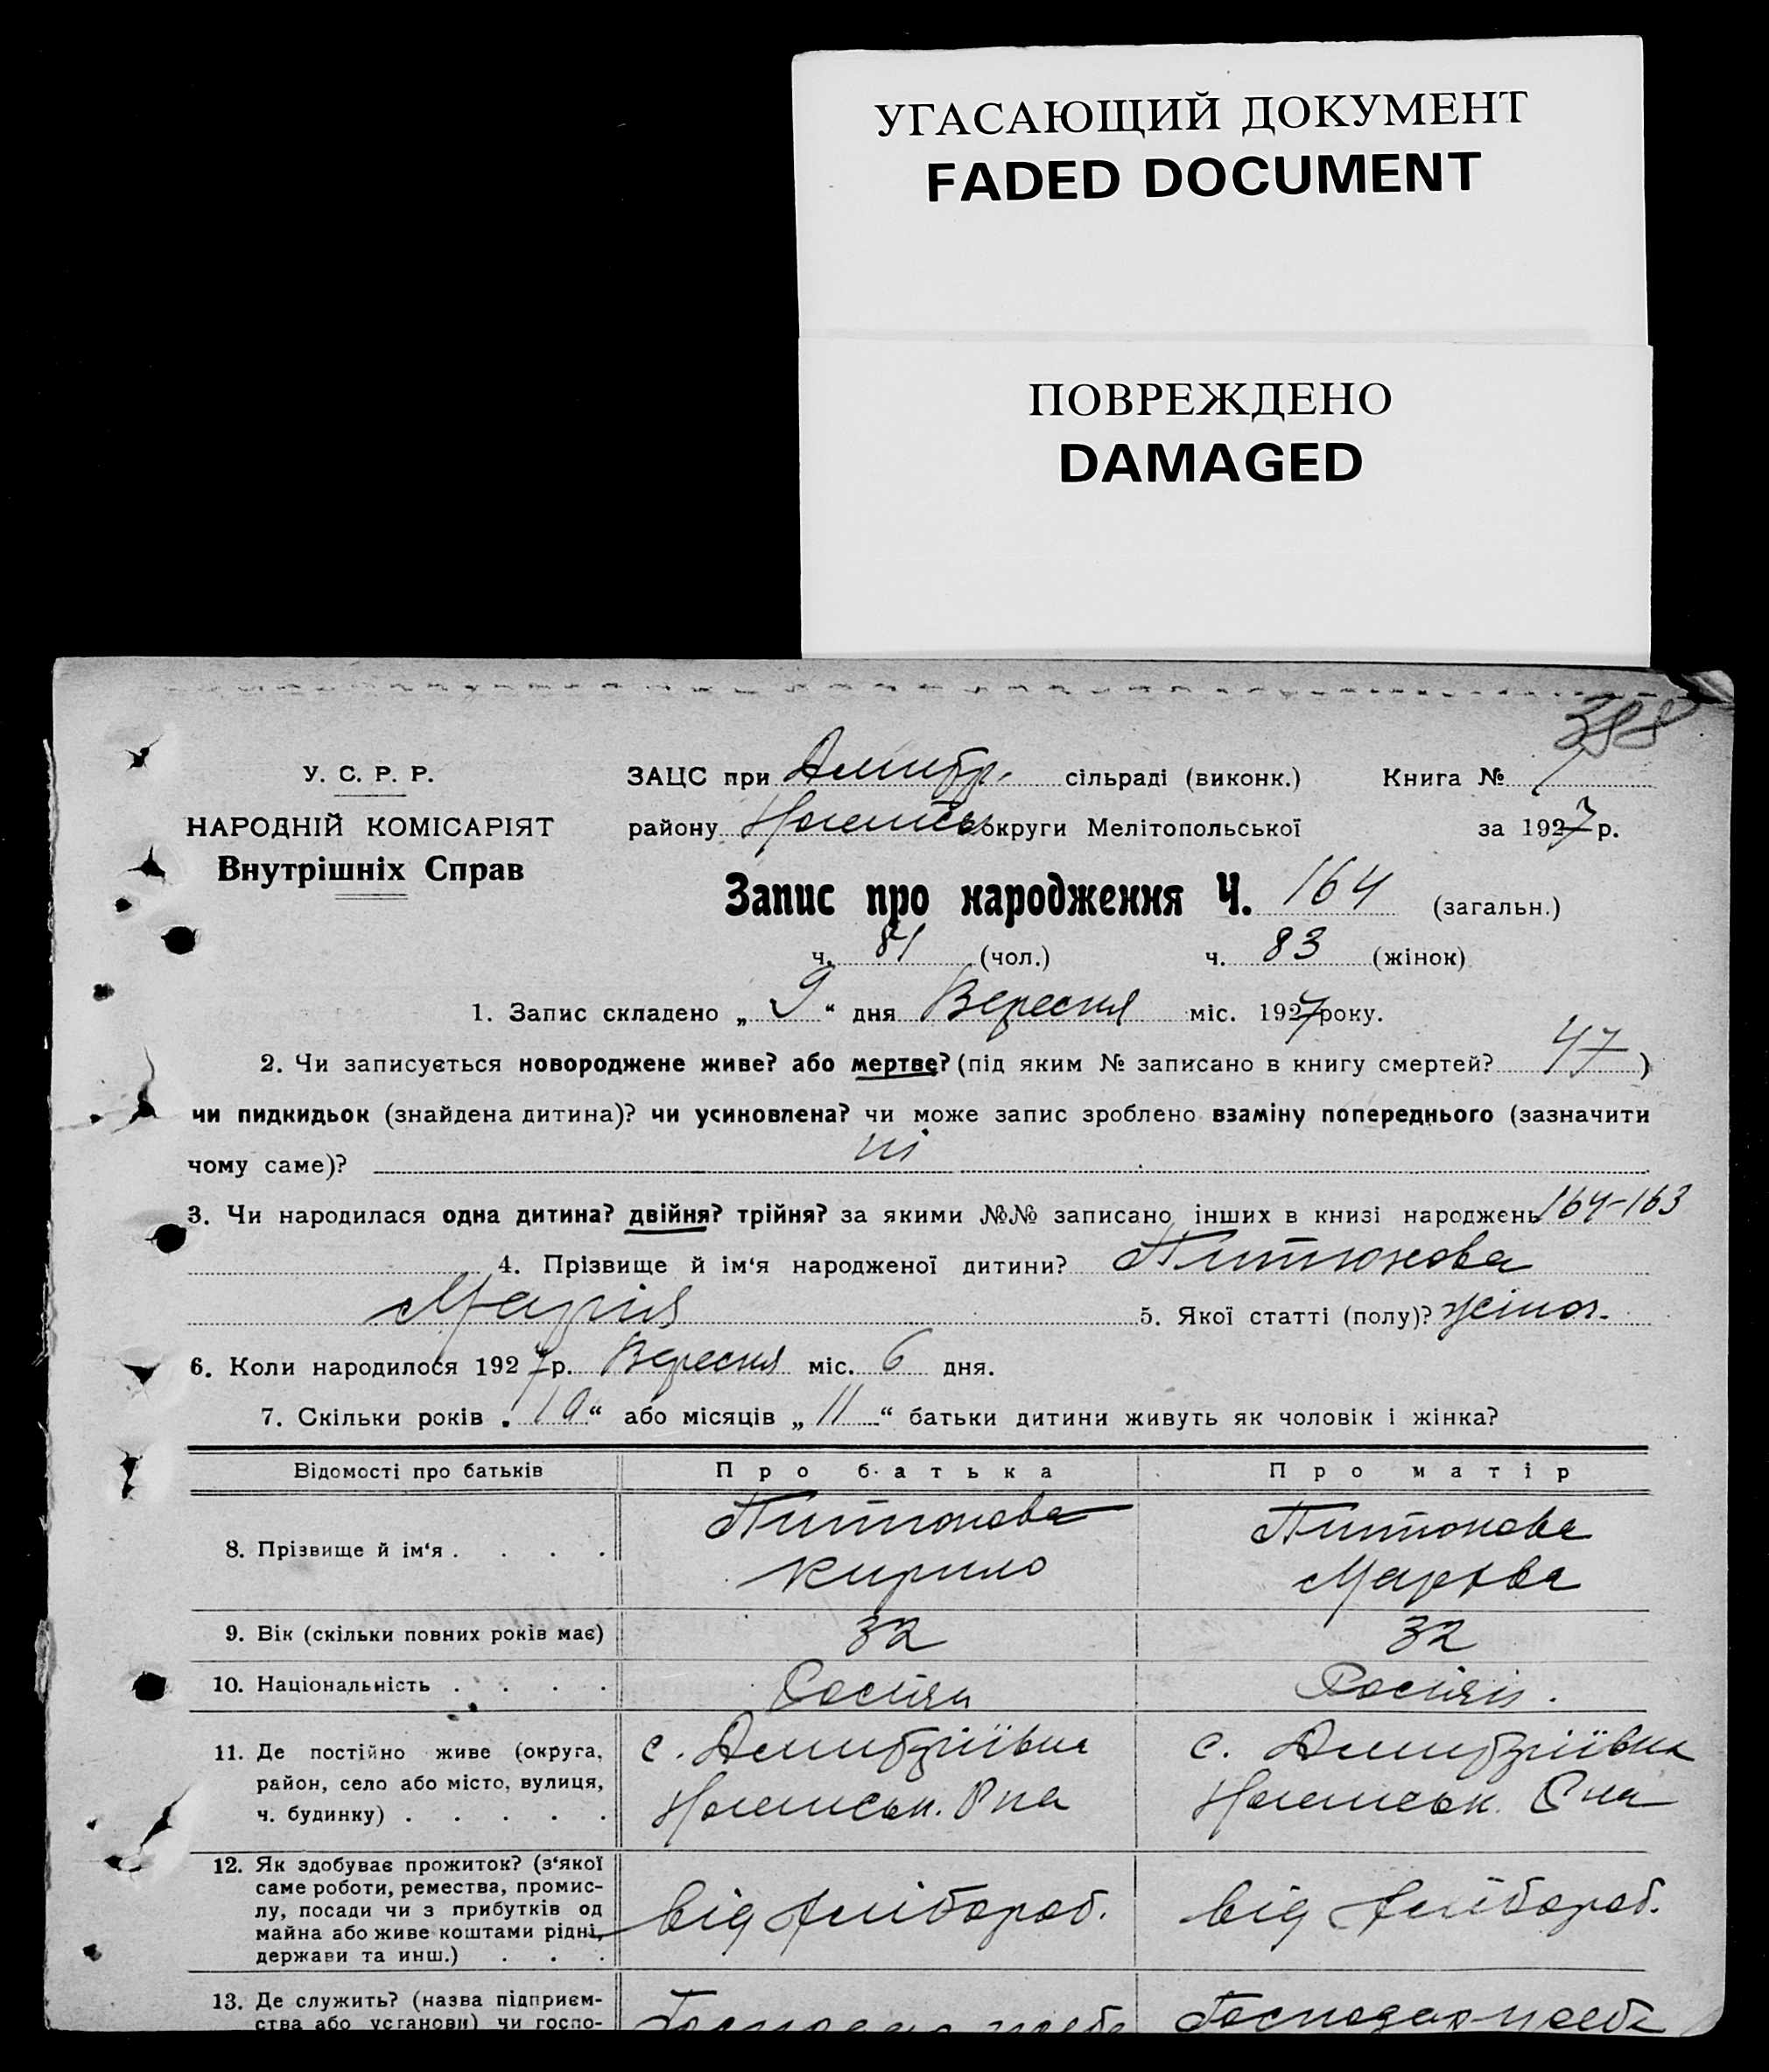 УГАСАЮЩИЙ ДОКУМЕНТ
FADED DOCUMENT
ПОВРЕЖДЕНО
DAMAGED
388
У. С. Р. Р.
НАРОДНІЙ КОМІСАРІЯТ
Внутрішніх Справ
ЗАЦС при сільраді (виконк.) Книга №
району округи Мелітопольської за 1927 р.
Запис про народження Ч. 164 (загальн.)
ч. 81 (чол.) ч. 83 (жінок)
1. Запис складено „ 9 “ дня Вересня міс. 1927 року.
2. Чи записується новороджене живе? або мертве? (під яким № записано в книгу смертей? 47 )
чи пидкидьок (знайдена дитина)? чи усиновлена? чи може запис зроблено взаміну попереднього (зазначити
чому саме)? ні
3. Чи народилася одна дитина? двійня? трійня? за якими №№ записано інших в книзі народжень 164-163
4. Прізвище й ім‘я народженої дитини?
Марія 5. Якої статті (полу)? жіноч.
6. Коли народилося 1927 р. Вересня міс. 6 дня.
7. Скільки років „ 10 “ або місяців „ 11 “ батьки дитини живуть як чоловік і жінка?
Відомості про батьків Про батька Про матір
8. Прізвище й ім‘я . . . .
Кирило
9. Вік (скільки повних років має) 32 32
10. Національність . . . . Росіян Росіян.
11. Де постійно живе (округа,
район, село або місто, вулиця,
ч. будинку) . . . . .
12. Як здобуває прожиток? (з‘якої
саме роботи, ремества, промис-
лу, посади чи з прибутків од
майна або живе коштами рідні,
держави та инш.) . . .
від хлібороб. від хлібороб.
13. Де служить? (назва підприєм-
ства або установи) чи госпо-